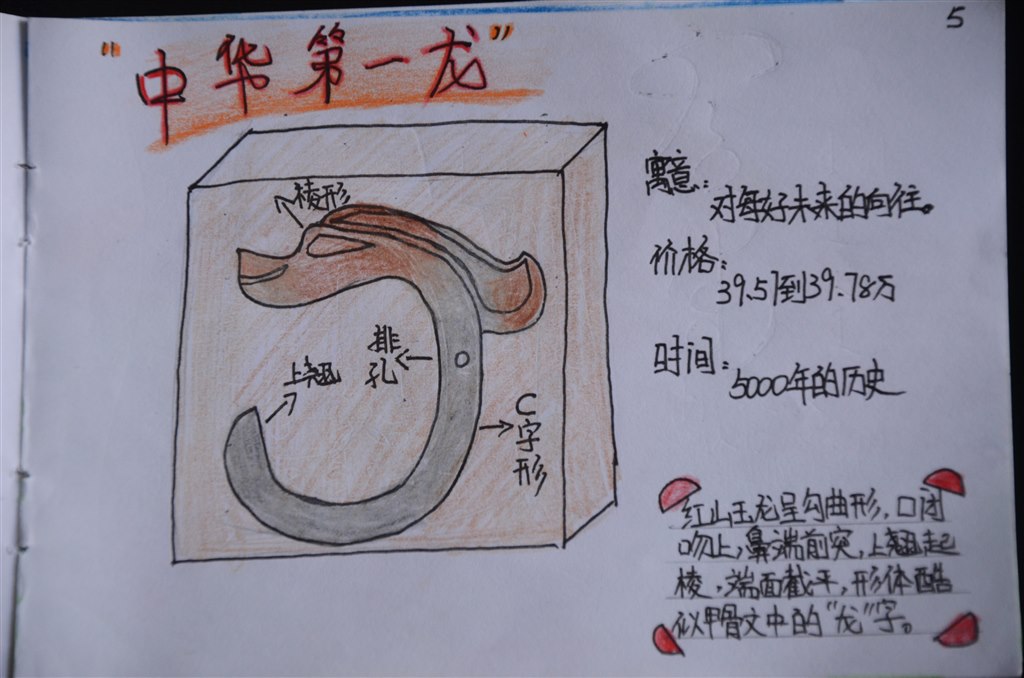 5
“中华第一龙”
棱形
排
孔
上翘
C
字
形
寓意:
对每好未来的向往。
价格:
39.57到39.78万
时间:
5000年的历史
红山玉龙呈勾曲形,口闭
吻上,鼻端前突,上翘起
棱,端面截平,形体酷
似甲骨文中的“龙”字。